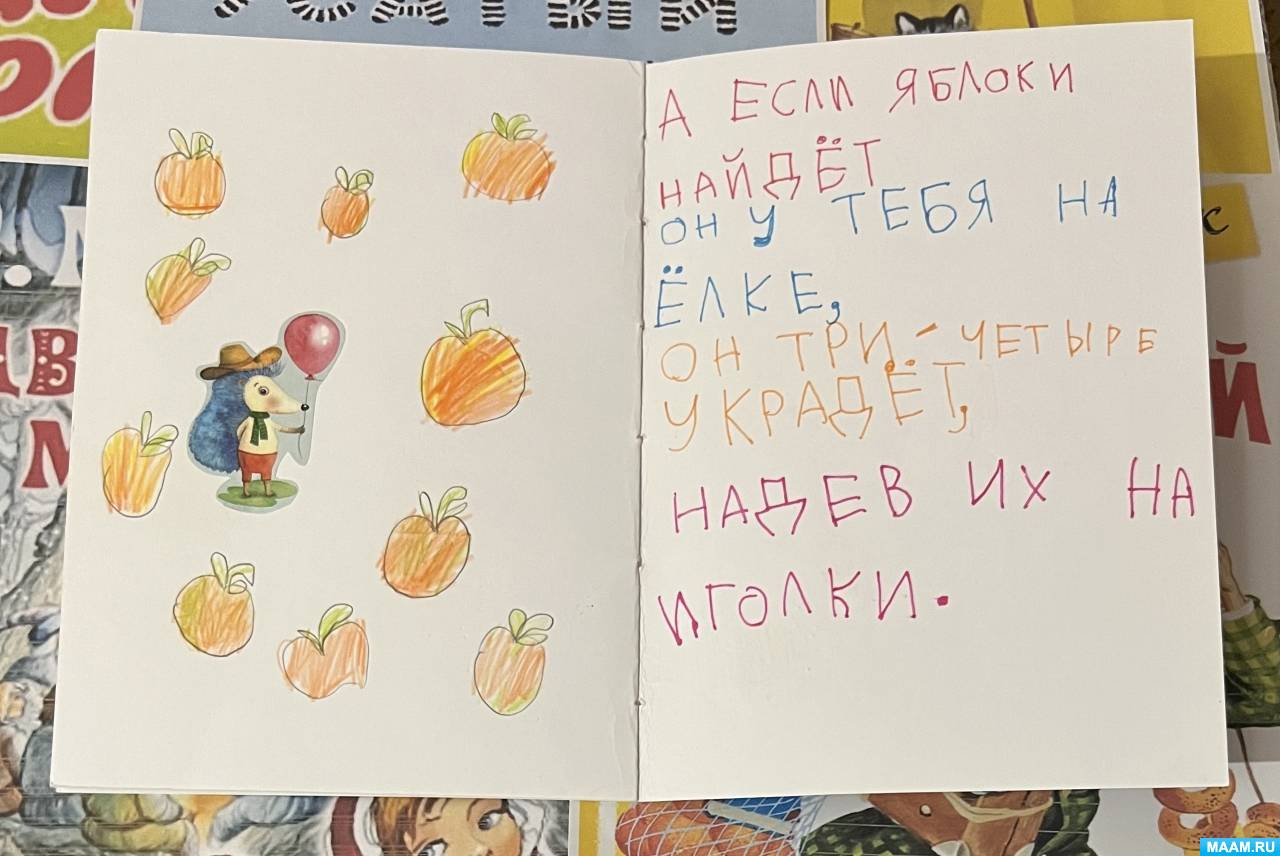 А ЕСЛИ ЯБЛОКИ
НАЙДЁТ
ОН У ТЕБЯ НА
ЁЛКЕ,
ОН ТРИ - ЧЕТЫРЕ
УКРАДЁТ,
НАДЕВ ИХ НА
ИГОЛКИ.
MAAM.RU